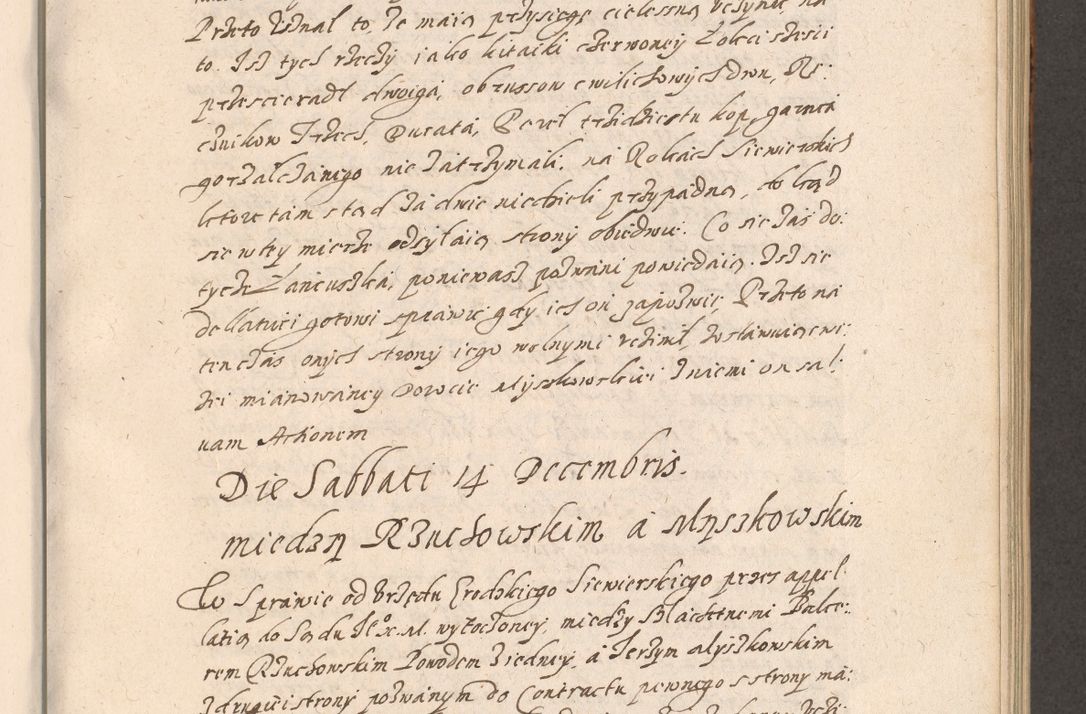 Przeto uznał to, że maią przysięgę cielesną uczynić na
to. Isz tych rzeczy iako kitaiki czerwoney łokci sześci
prześcieradł dwoiga, obrussow cwilichowych dwu, Rę:
cznikow Trzech, Ducata, Pereł trzidziestu kop, garnca
gorzałczanego nie zatrzymali. na Rokach Siewierskich
ktore tam stąd za dwie niedzieli przypadną, do kąd
sie w tey mierze odsyłaią strony obiedwie. Co sie zas do:
tycze Łancuszka, poniewasz pozwani powiedaią. Isz sie
deliatuiei gotowi sprawic gdy ich oń zapozwie, Przeto na
ten czas onych strony iego wolnymi uczinił zostawuiąc wi:
mianowaney Dorocie Myszkowskiei z niemi on sal:
uam Actionem
Die Sabbati 14 Decembris.
miedzy Rzuchowskim a Myszkowskim
W Sprawie od Urzędu Grodzkiego Siewierskiego przez appel:
latią do Sądu Jeº X. M. wytoczoney, miedzy Szlachetnemi Balce:
rem Rzuchowskim Powodem z iedney, a Jerzym Myszkowskim
z drugiei strony pozwanym do Contractu pewnego s strony ma: